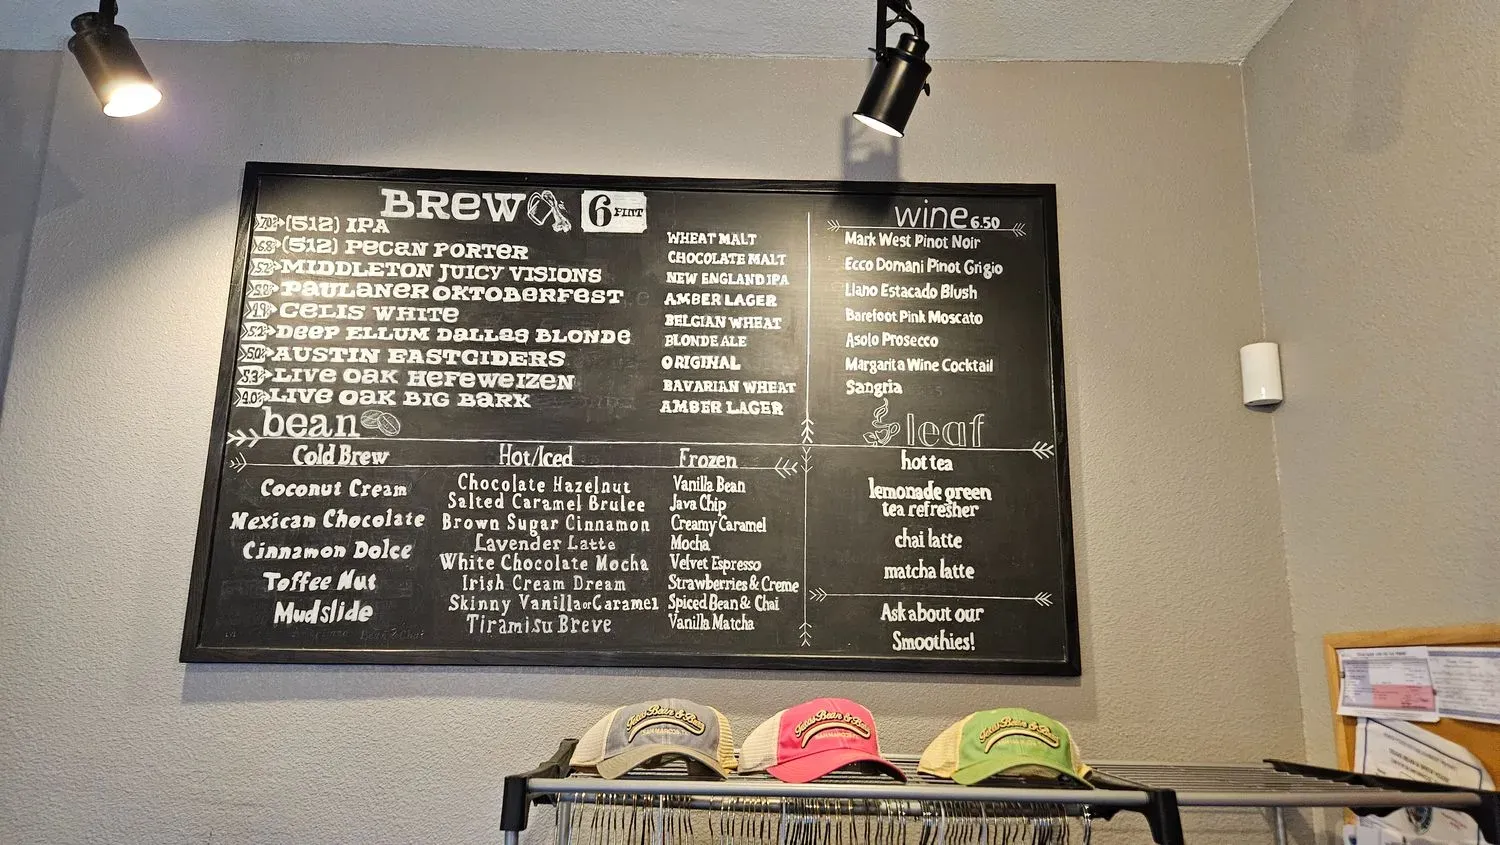 BREW 6 PINT
7.0% (512) IPA WHEAT MALT
6.8 (512) PECAN PORTER CHOCOLATE MALT
5.2 MIDDLETON JUICY VISIONS NEW ENGLAND IPA
5.8 PAULANER OKTOBERFEST AMBER LAGER
4.9 CELIS WHITE BELGIAN WHEAT
5.2 DEEP ELLUM DALLAS BLONDE BLONDE ALE
5.0% AUSTIN EASTCIDERS ORIGINAL
5.3 LIVE OAK HEFEWEIZEN BAVARIAN WHEAT
4.0 LIVE OAK BIG BARK AMBER LAGER
wine 6.50
Mark West Pinot Noir
Ecco Domani Pinot Grigio
Llano Estacado Blush
Barefoot Pink Moscato
Asolo Prosecco
Margarita Wine Cocktail
Sangria
bean
Cold Brew
Coconut Cream
Mexican Chocolate
Cinnamon Dolce
Toffee Nut
Mudslide
Hot/Iced
Chocolate Hazelnut
Salted Caramel Brulee
Brown Sugar Cinnamon
Lavender Latte
White Chocolate Mocha
Irish Cream Dream
Skinny Vanilla or Caramel
Tiramisu Breve
Frozen
Vanilla Bean
Java Chip
Creamy Caramel
Mocha
Velvet Espresso
Strawberries & Creme
Spiced Bean & Chai
Vanilla Matcha
leaf
hot tea
lemonade green
tea refresher
chai latte
matcha latte
Ask about our
Smoothies!
Texas Bean & Brew
SAN MARCOS, TX
Texas Bean & Brew
SAN MARCOS
Texas Bean & Brew